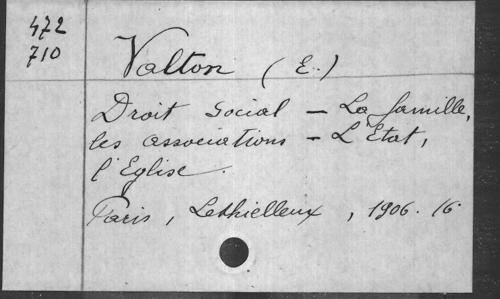 472
710
Valton (E.)
Droit social – La famille,
les associations – L'Etat,
l'Eglise.
Paris, Lethielleux, 1906. 16°